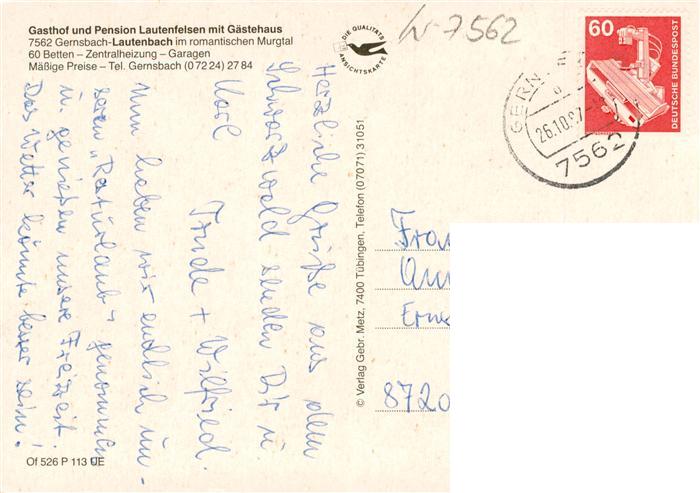 Gasthof und Pension Lautenfelsen mit Gästehaus
7562 Gernsbach-Lautenbach im romantischen Murgtal
60 Betten – Zentralheizung – Garagen
Mäßige Preise – Tel. Gernsbach (0 72 24) 27 84
DIE QUALITÄTS
ANSICHTSKARTE
W-7562
60
DEUTSCHE BUNDESPOST
GERN
26.10.87
7562
Herzliche Grüße aus dem
Schwarzwald senden Dir u.
Karl
Trude + Wilfried.
Nun haben wir endlich un-
seren „Resturlaub" genommen
u. genießen unsere Freizeit.
Das Wetter könnte besser sein!
© Verlag Gebr. Metz, 7400 Tübingen, Telefon (07071) 31051
Frau
Ann
Erne
8720
Of 526 P 113 UE